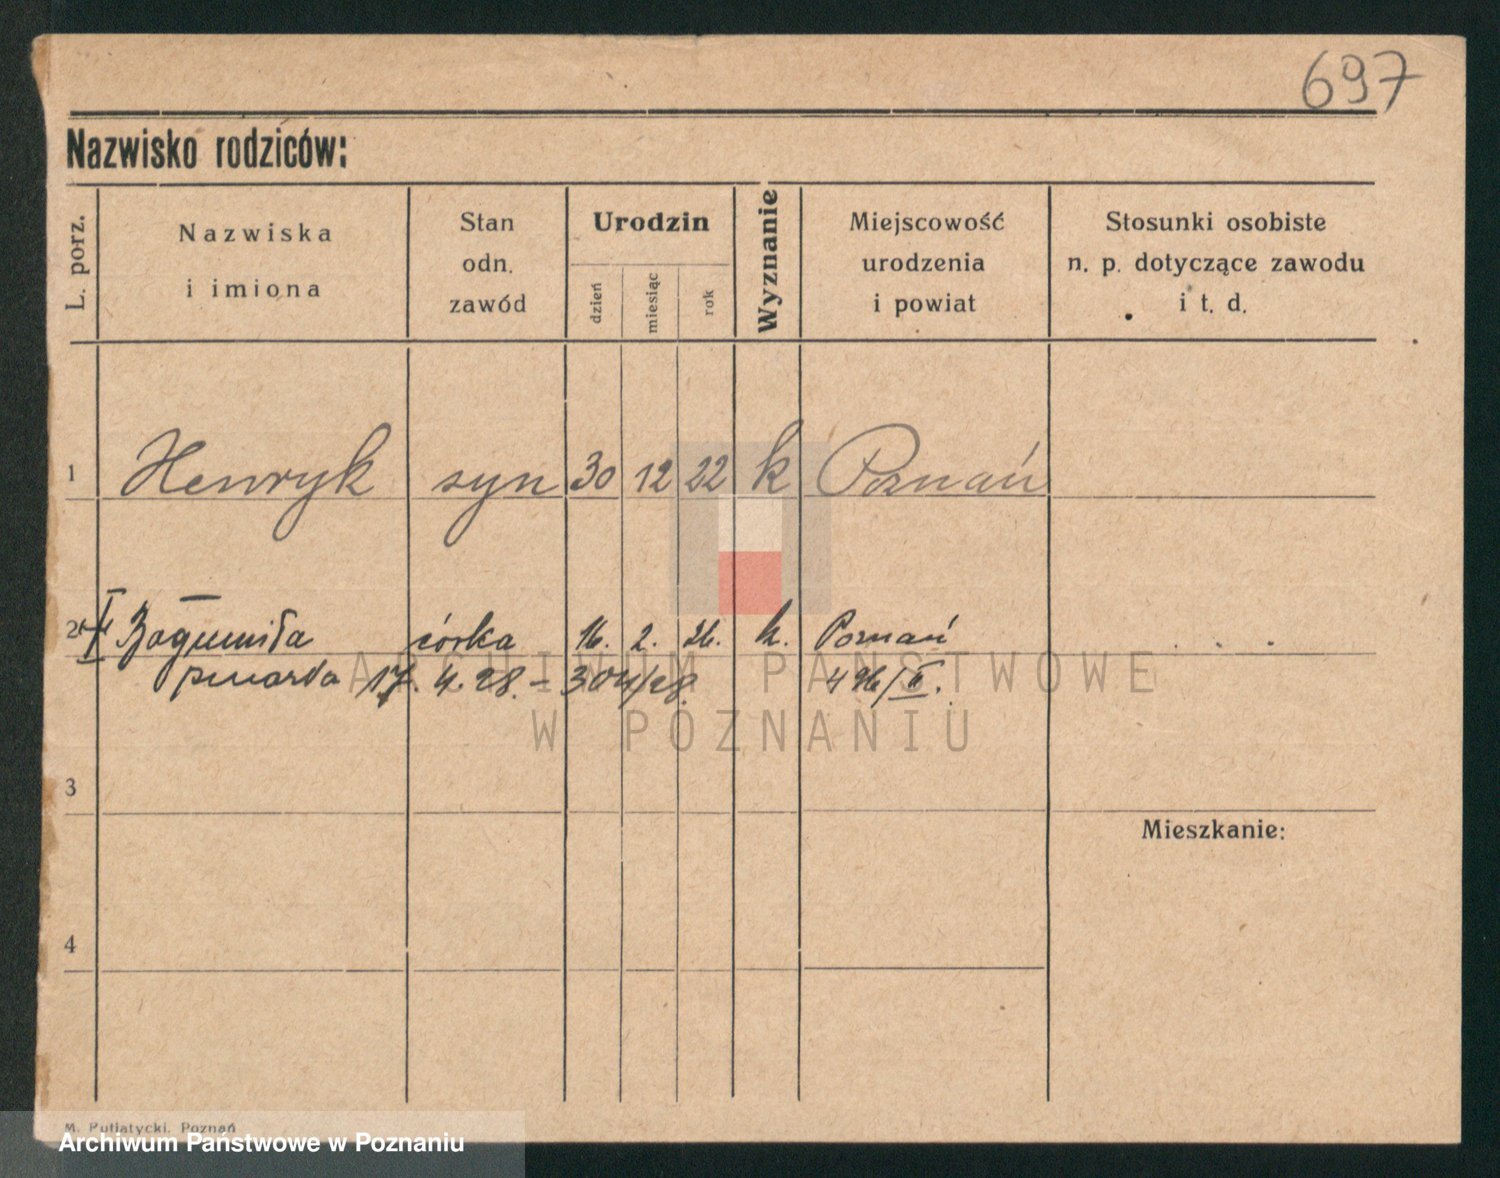 697
Nazwisko rodziców:
L. porz.
Nazwiska
i imiona
Stan
odn.
zawód
Urodzin
dzień
miesiąc
rok
Wyznanie
Miejscowość
urodzenia
i powiat
Stosunki osobiste
n. p. dotyczące zawodu
i t. d.
1 Henryk syn 30 12 22 k Poznań
2 Bogumiła córka 16. 2. 26. k. Poznań
zmarła 17. 4. 28. – 304/28. 496/II.
ARCHIWUM PAŃSTWOWE
W POZNANIU
3
Mieszkanie:
4
M. Putiatycki, Poznań
Archiwum Państwowe w Poznaniu